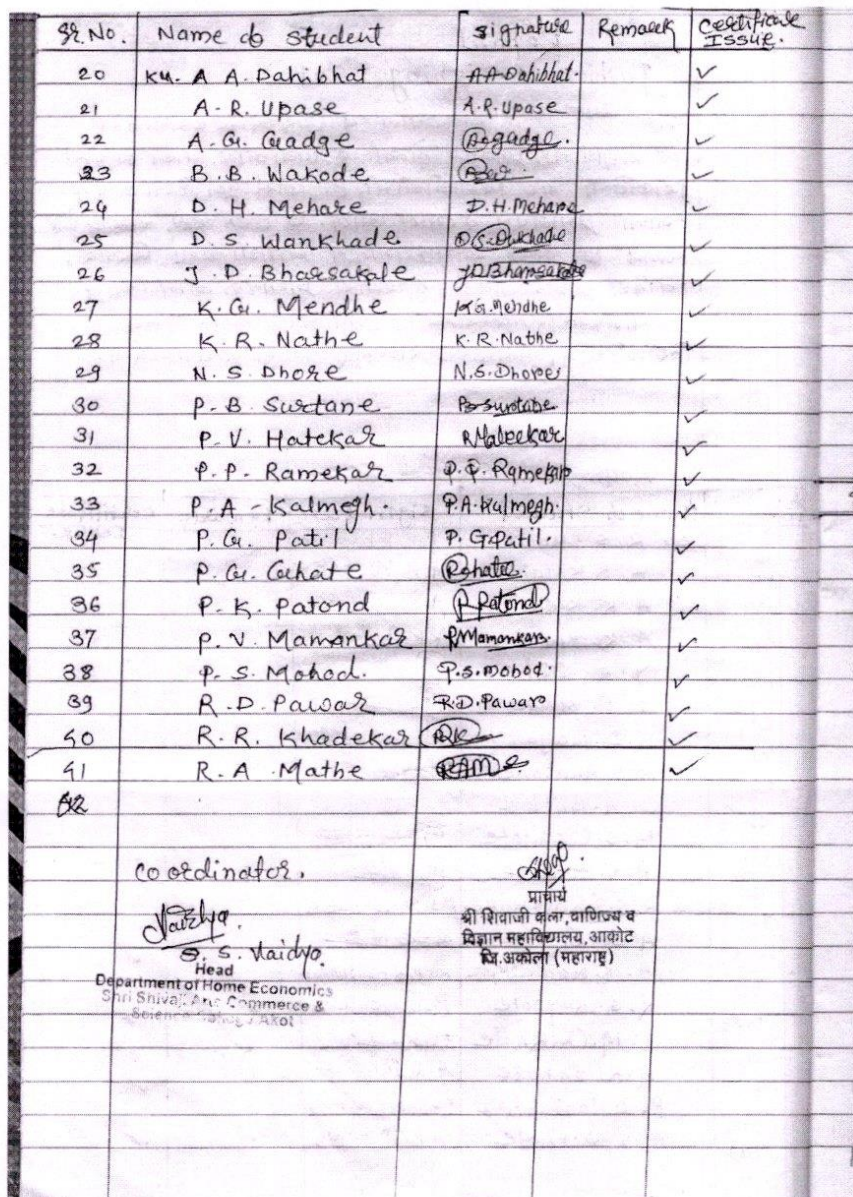 Sr. No. Name of student signature Remark Certificate Issue.
20 Ku. A A. Dahibhat A A Dahibhat.
21 A. R. Upase A. R. Upase
22 A. G. Gadge Gadge.
23 B. B. Wakode
24 D. H. Mehare D. H. Mehare
25 D. S. Wankhade
26 J. D. Bharsakale J D Bharsakale
27 K. G. Mendhe K. G. Mendhe
28 K. R. Nathe K. R. Nathe
29 N. S. Dhore N. S. Dhore
30 P. B. Surtane Surtane
31 P. V. Hatekar
32 P. P. Ramekar P. P. Ramekar
33 P. A - Kalmegh. P. A. Kalmegh.
34 P. G. Patil P. G. Patil.
35 P. G. Ghate
36 P. K. Patond P Patond
37 P. V. Mamankar P Mamankar.
38 P. S. Mohod. P. S. mohod.
39 R. D. Pawar R. D. Pawar
40 R. R. Khadekar RRK
41 R. A. Mathe RAM
42
Coordinator.
Vaidya.
S. Vaidya.
Head
Department of Home Economics
Shri Shivaji Arts Commerce &
Science College Akot
प्राचार्य
श्री शिवाजी कला, वाणिज्य व
विज्ञान महाविद्यालय, आकोट
जि. अकोला (महाराष्ट्र)